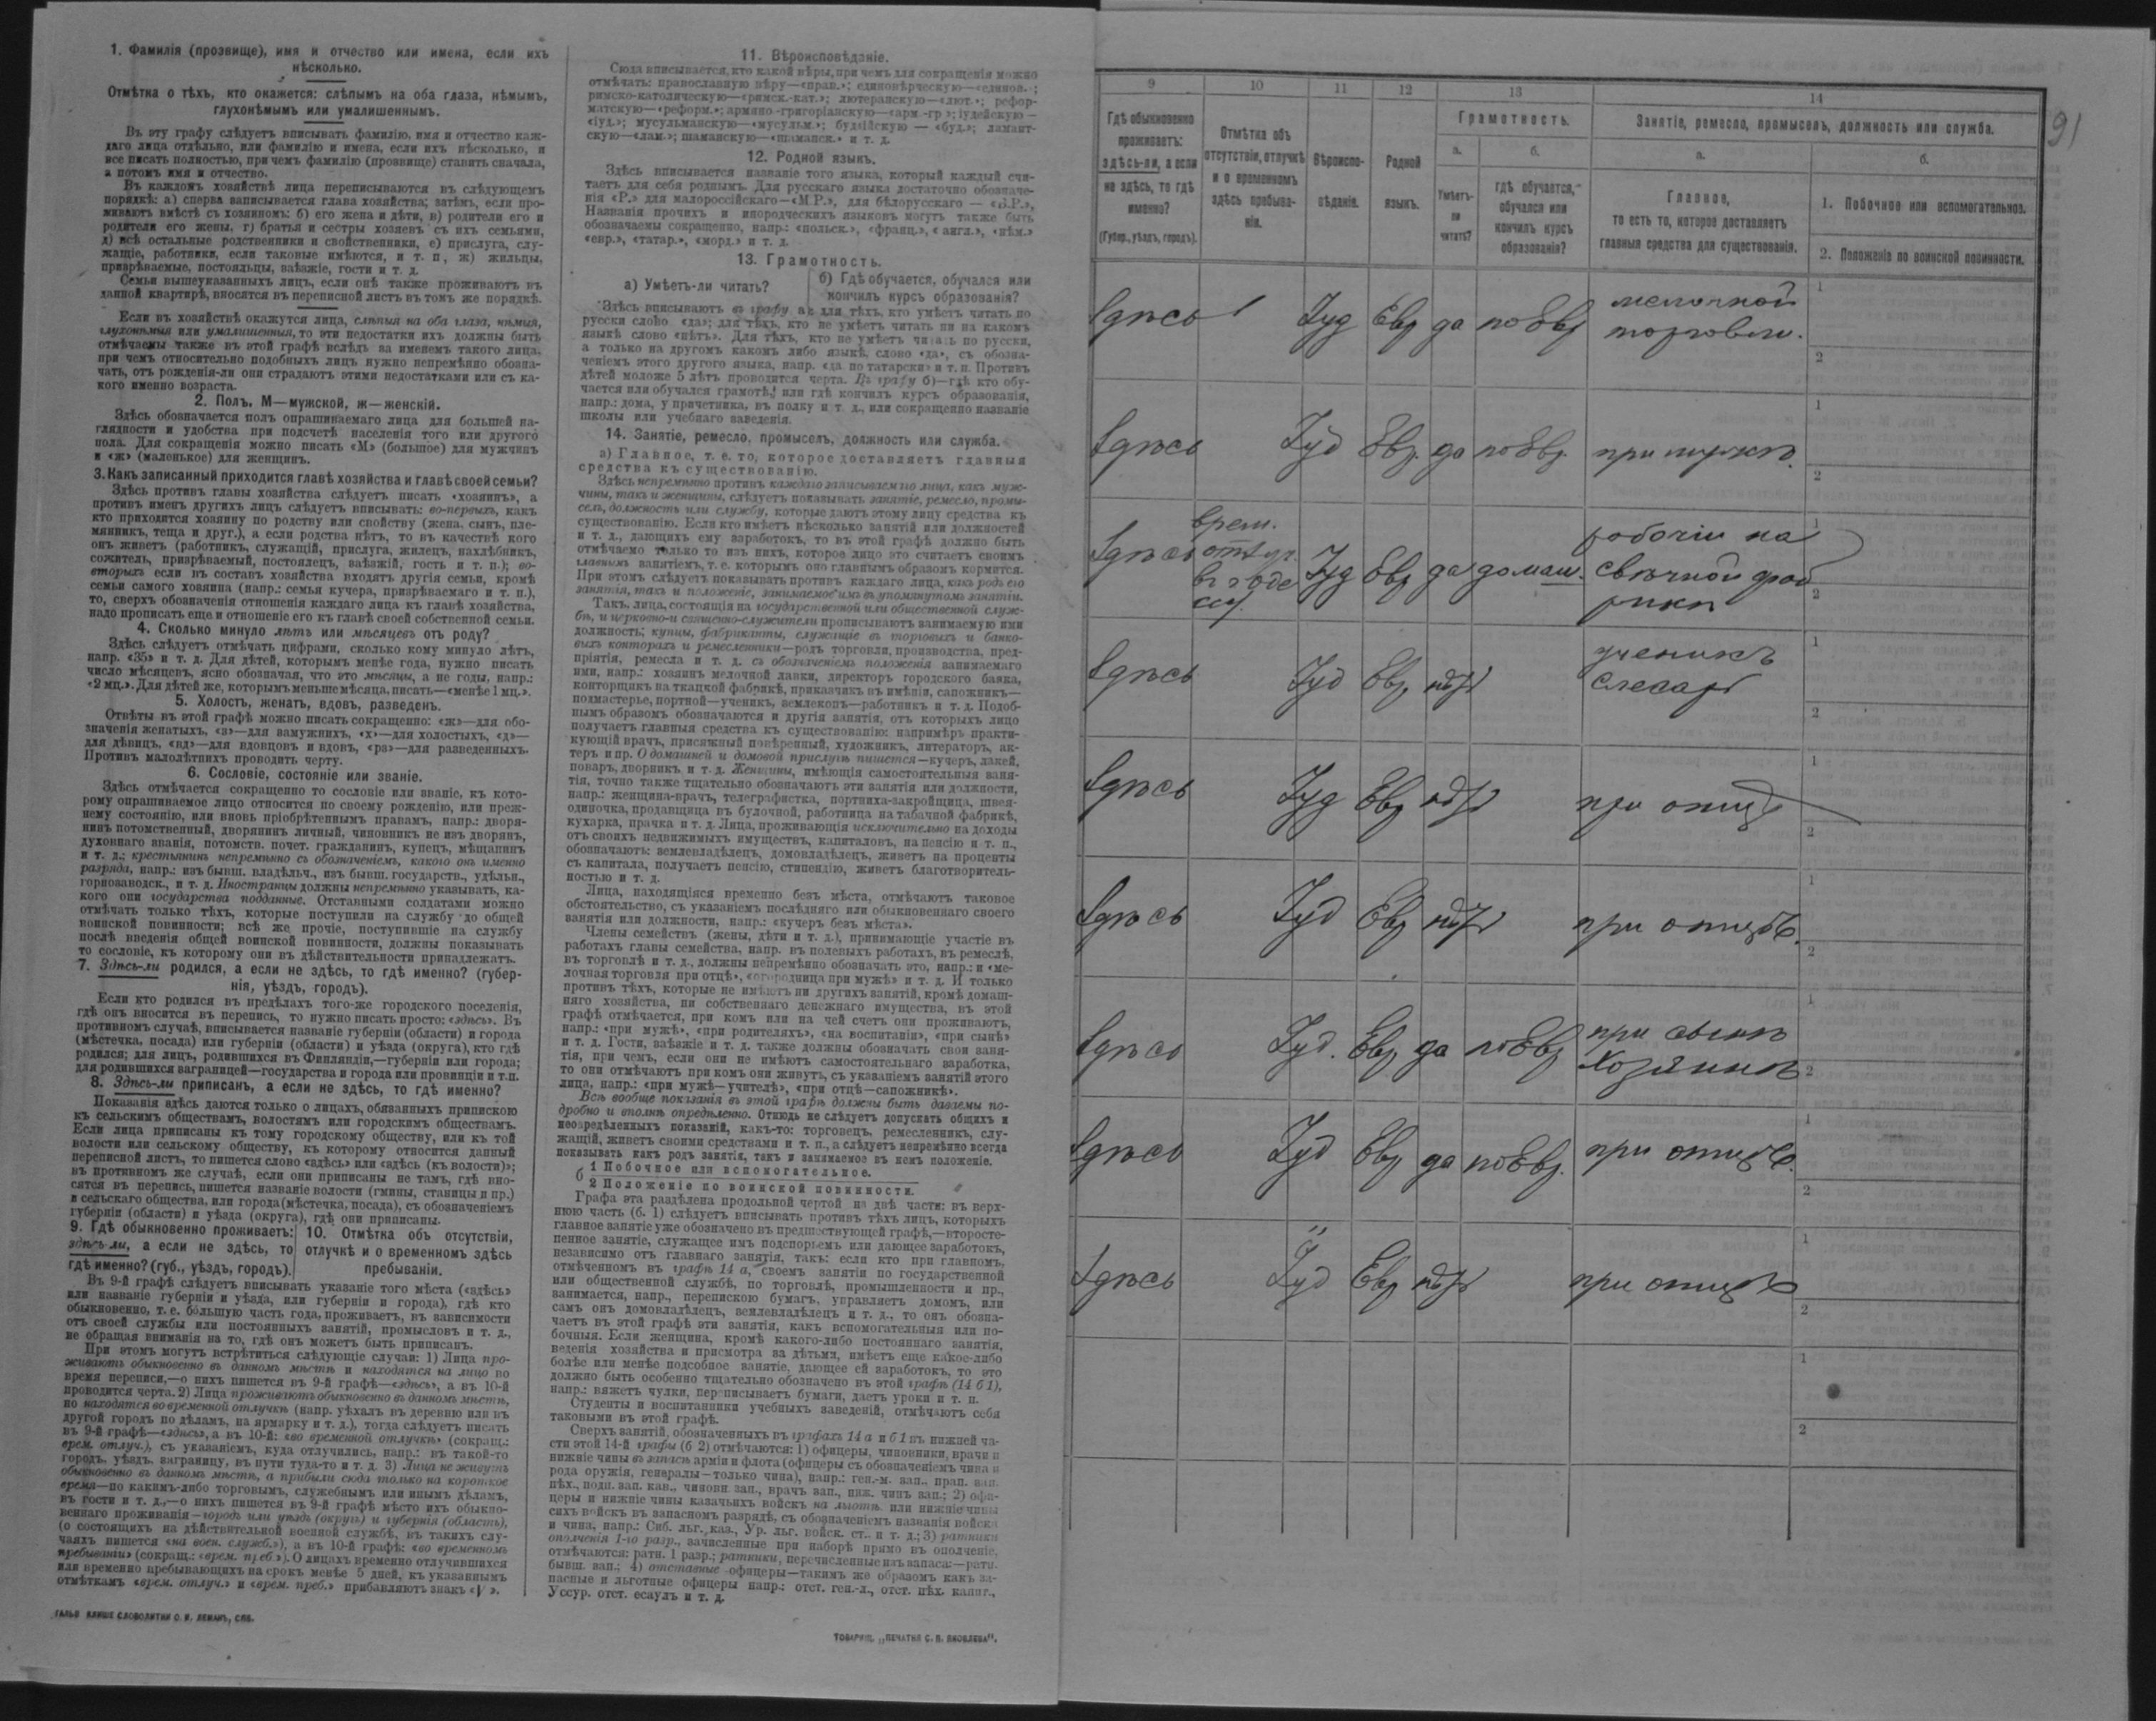 1. Фамилія (прозвище), имя и отчество или имена, если ихъ
нѣсколько.
Отмѣтка о тѣхъ, кто окажется: слѣпымъ на оба глаза, нѣмымъ,
глухонѣмымъ или умалишеннымъ.
Въ эту графу слѣдуетъ вписывать фамилію, имя и отчество каж-
даго лица отдѣльно, или фамилію и имена, если ихъ нѣсколько, и
все писать полностью, при чемъ фамилію (прозвище) ставить сначала,
а потомъ имя и отчество.
Въ каждомъ хозяйствѣ лица переписываются въ слѣдующемъ
порядкѣ: а) сперва записывается глава хозяйства; затѣмъ, если про-
живаютъ вмѣстѣ съ хозяиномъ: б) его жена и дѣти, в) родители его и
родители его жены, г) братья и сестры хозяевъ съ ихъ семьями,
д) всѣ остальные родственники и свойственники, е) прислуга, слу-
жащіе, работники, если таковые имѣются, и т. п, ж) жильцы,
призрѣваемые, постояльцы, заѣзжіе, гости и т. д.
Семьи вышеуказанныхъ лицъ, если онѣ также проживаютъ въ
данной квартирѣ, вносятся въ переписной листъ въ томъ же порядкѣ.
Если въ хозяйствѣ окажутся лица, слѣпыя на оба глаза, нѣмыя,
глухонѣмыя или умалишенныя, то эти недостатки ихъ должны быть
отмѣчаемы также въ этой графѣ вслѣдъ за именемъ такого лица,
при чемъ относительно подобныхъ лицъ нужно непремѣнно обозна-
чать, отъ рожденія-ли они страдаютъ этими недостатками или съ ка-
кого именно возраста.
2. Полъ. М—мужской, ж—женскій.
Здѣсь обозначается полъ опрашиваемаго лица для большей на-
глядности и удобства при подсчетѣ населенія того или другого
пола. Для сокращенія можно писать «М» (большое) для мужчинъ
и «ж» (маленькое) для женщинъ.
3. Какъ записанный приходится главѣ хозяйства и главѣ своей семьи?
Здѣсь противъ главы хозяйства слѣдуетъ писать «хозяинъ», а
противъ именъ другихъ лицъ слѣдуетъ вписывать: во-первыхъ, какъ
кто приходится хозяину по родству или свойству (жена, сынъ, пле-
мянникъ, теща и друг.), а если родства нѣтъ, то въ качествѣ кого
онъ живетъ (работникъ, служащій, прислуга, жилецъ, нахлѣбникъ,
сожитель, призрѣваемый, постоялецъ, заѣзжій, гость и т. п.); во-
вторыхъ если въ составъ хозяйства входятъ другія семьи, кромѣ
семьи самого хозяина (напр.: семья кучера, призрѣваемаго и т. п.),
то, сверхъ обозначенія отношенія каждаго лица къ главѣ хозяйства,
надо прописать еще и отношеніе его къ главѣ своей собственной семьи.
4. Сколько минуло лѣтъ или мѣсяцевъ отъ роду?
Здѣсь слѣдуетъ отмѣчать цифрами, сколько кому минуло лѣтъ,
напр. «35» и т. д. Для дѣтей, которымъ менѣе года, нужно писать
число мѣсяцевъ, ясно обозначая, что это мѣсяцы, а не годы, напр.:
«2 мц.». Для дѣтей же, которымъ меньше мѣсяца, писать—«менѣе 1 мц.».
5. Холостъ, женатъ, вдовъ, разведенъ.
Отвѣты въ этой графѣ можно писать сокращенно: «ж»—для обо-
значенія женатыхъ, «з»—для замужнихъ, «х»—для холостыхъ, «д»—
для дѣвицъ, «вд»—для вдовцовъ и вдовъ, «рз»—для разведенныхъ.
Противъ малолѣтнихъ проводить черту.
6. Сословіе, состояніе или званіе.
Здѣсь отмѣчается сокращенно то сословіе или званіе, къ кото-
рому опрашиваемое лицо относится по своему рожденію, или преж-
нему состоянію, или вновь пріобрѣтеннымъ правамъ, напр.: дворя-
нинъ потомственный, дворянинъ личный, чиновникъ не изъ дворянъ,
духовнаго званія, потомств. почет. гражданинъ, купецъ, мѣщанинъ
и т. д.; крестьянинъ непремѣнно съ обозначеніемъ, какого онъ именно
разряда, напр.: изъ бывш. владѣльч., изъ бывш. государств., удѣльн.,
горнозаводск., и т. д. Иностранцы должны непремѣнно указывать, ка-
кого они государства подданные. Отставными солдатами можно
отмѣчать только тѣхъ, которые поступили на службу до общей
воинской повинности; всѣ же прочіе, поступившіе на службу
послѣ введенія общей воинской повинности, должны показывать
то сословіе, къ которому они въ дѣйствительности принадлежатъ.
7. Здѣсь-ли родился, а если не здѣсь, то гдѣ именно? (губер-
нія, уѣздъ, городъ).
Если кто родился въ предѣлахъ того-же городского поселенія,
гдѣ онъ вносится въ перепись, то нужно писать просто: «здѣсь». Въ
противномъ случаѣ, вписывается названіе губерніи (области) и города
(мѣстечка, посада) или губерніи (области) и уѣзда (округа), кто гдѣ
родился; для лицъ, родившихся въ Финляндіи,—губерніи или города;
для родившихся заграницей—государства и города или провинціи и т.п.
8. Здѣсь-ли приписанъ, а если не здѣсь, то гдѣ именно?
Показанія здѣсь даются только о лицахъ, обязанныхъ припискою
къ сельскимъ обществамъ, волостямъ или городскимъ обществамъ.
Если лица приписаны къ тому городскому обществу, или къ той
волости или сельскому обществу, къ которому относится данный
переписной листъ, то пишется слово «здѣсь» или «здѣсь (къ волости)»;
въ противномъ же случаѣ, если они приписаны не тамъ, гдѣ вно-
сятся въ перепись, пишется названіе волости (гмины, станицы и пр.)
и сельскаго общества, или города (мѣстечка, посада), съ обозначеніемъ
губерніи (области) и уѣзда (округа), гдѣ они приписаны.
9. Гдѣ обыкновенно проживаетъ:
здѣсь-ли, а если не здѣсь, то
гдѣ именно? (губ., уѣздъ, городъ).
10. Отмѣтка объ отсутствіи,
отлучкѣ и о временномъ здѣсь
пребываніи.
Въ 9-й графѣ слѣдуетъ вписывать указаніе того мѣста («здѣсь»
или названіе губерніи и уѣзда, или губерніи и города), гдѣ кто
обыкновенно, т. е. бо́льшую часть года, проживаетъ, въ зависимости
отъ своей службы или постоянныхъ занятій, промысловъ и т. д.,
не обращая вниманія на то, гдѣ онъ можетъ быть приписанъ.
При этомъ могутъ встрѣтиться слѣдующіе случаи: 1) Лица про-
живаютъ обыкновенно въ данномъ мѣстѣ и находятся на лицо во
время переписи,—о нихъ пишется въ 9-й графѣ—«здѣсь», а въ 10-й
проводится черта. 2) Лица проживаютъ обыкновенно въ данномъ мѣстѣ,
но находятся во временной отлучкѣ (напр. уѣхалъ въ деревню или въ
другой городъ по дѣламъ, на ярмарку и т. д.), тогда слѣдуетъ писать
въ 9-й графѣ—«здѣсь», а въ 10-й: «во временной отлучкѣ» (сокращ.:
врем. отлуч.), съ указаніемъ, куда отлучились, напр.: въ такой-то
городъ, уѣздъ, заграницу, въ пути туда-то и т. д. 3) Лица не живутъ
обыкновенно въ данномъ мѣстѣ, а прибыли сюда только на короткое
время—по какимъ-либо торговымъ, служебнымъ или инымъ дѣламъ,
въ гости и т. д.,—о нихъ пишется въ 9-й графѣ мѣсто ихъ обыкно-
веннаго проживанія—городъ или уѣздъ (округъ) и губернія (область),
(о состоящихъ на дѣйствительной военной службѣ, въ такихъ слу-
чаяхъ пишется «на воен. служб.»), а въ 10-й графѣ: «во временномъ
пребываніи» (сокращ.: «врем. преб.»). О лицахъ временно отлучившихся
или временно пребывающихъ на срокъ менѣе 5 дней, къ указаннымъ
отмѣткамъ «врем. отлуч.» и «врем. преб.» прибавляютъ знакъ «V».
КЛИШЕ СЛОВОЛИТНИ О. И. ЛЕМАНЪ, СПБ.
11. Вѣроисповѣданіе.
Сюда вписывается, кто какой вѣры, при чемъ для сокращенія можно
отмѣчать: православную вѣру—«прав.»; единовѣрческую—«единов.»;
римско-католическую—«римск.-кат.»; лютеранскую—«лют.»; рефор-
матскую—«реформ.»; армяно-григоріанскую—«арм.-гр.»; іудейскую—
«іуд.»; мусульманскую—«мусульм.»; буддійскую—«буд.»; ламаит-
скую—«лам.»; шаманскую—«шаманск.» и т. д.
12. Родной языкъ.
Здѣсь вписывается названіе того языка, который каждый счи-
таетъ для себя роднымъ. Для русскаго языка достаточно обозначе-
нія «Р.» для малороссійскаго—«М.Р.», для бѣлорусскаго—«Б.Р.»,
Названія прочихъ и инородческихъ языковъ могутъ также быть
обозначаемы сокращенно, напр.: «польск.», «франц.», «англ.», «нѣм.»
«евр.», «татар.», «морд.» и т. д.
13. Грамотность.
а) Умѣетъ-ли читать?
б) Гдѣ обучается, обучался или
кончилъ курсъ образованія?
Здѣсь вписываютъ въ графу а: для тѣхъ, кто умѣетъ читать по
русски слово «да»; для тѣхъ, кто не умѣетъ читать ни на какомъ
языкѣ слово «нѣтъ». Для тѣхъ, кто не умѣетъ читать по русски,
а только на другомъ какомъ либо языкѣ, слово «да», съ обозна-
ченіемъ этого другого языка, напр. «да по татарски» и т. п. Противъ
дѣтей моложе 5 лѣтъ проводится черта. Въ графу б)—гдѣ кто обу-
чается или обучался грамотѣ, или гдѣ кончилъ курсъ образованія,
напр.: дома, у причетника, въ полку и т. д., или сокращенно названіе
школы или учебнаго заведенія.
14. Занятіе, ремесло, промыселъ, должность или служба.
а) Главное, т. е. то, которое доставляетъ главныя
средства къ существованію.
Здѣсь непремѣнно противъ каждаго записываемаго лица, какъ муж-
чины, такъ и женщины, слѣдуетъ показывать занятіе, ремесло, промы-
селъ, должность или службу, которые даютъ этому лицу средства къ
существованію. Если кто имѣетъ нѣсколько занятій или должностей
и т. д., дающихъ ему заработокъ, то въ этой графѣ должно быть
отмѣчаемо только то изъ нихъ, которое лицо это считаетъ своимъ
главнымъ занятіемъ, т. е. которымъ оно главнымъ образомъ кормится.
При этомъ слѣдуетъ показывать противъ каждаго лица, какъ родъ его
занятія, такъ и положеніе, занимаемое имъ въ упомянутомъ занятіи.
Такъ, лица, состоящія на государственной или общественной служ-
бѣ, и церковно-и священно-служители прописываютъ занимаемую ими
должность; купцы, фабриканты, служащіе въ торговыхъ и банко-
выхъ конторахъ и ремесленники—родъ торговли, производства, пред-
пріятія, ремесла и т. д. съ обозначеніемъ положенія занимаемаго
ими, напр.: хозяинъ мелочной лавки, директоръ городского банка,
конторщикъ на ткацкой фабрикѣ, приказчикъ въ имѣніи, сапожникъ—
подмастерье, портной—ученик, землекопъ—работникъ и т. д. Подоб-
нымъ образомъ обозначаются и другія занятія, отъ которыхъ лицо
получаетъ главныя средства къ существованію: напримѣръ практи-
кующій врачъ, присяжный повѣренный, художникъ, литераторъ, ак-
теръ и пр. О домашней и домовой прислугѣ пишется—кучеръ, лакей,
поваръ, дворникъ и т. д. Женщины, имѣющія самостоятельныя заня-
тія, точно также тщательно обозначаютъ эти занятія или должности,
напр.: женщина-врачъ, телеграфистка, портниха-закройщица, швея-
одиночка, продавщица въ булочной, работница на табачной фабрикѣ,
кухарка, прачка и т. д. Лица, проживающія исключительно на доходы
отъ своихъ недвижимыхъ имуществъ, капиталовъ, на пенсію и т. п.,
обозначаютъ: землевладѣлецъ, домовладѣлецъ, живетъ на проценты
съ капитала, получаетъ пенсію, стипендію, живетъ благотворитель-
ностью и т. д.
Лица, находящіяся временно безъ мѣста, отмѣчаютъ таковое
обстоятельство, съ указаніемъ послѣдняго или обыкновеннаго своего
занятія или должности, напр.: «кучеръ безъ мѣста».
Члены семействъ (жены, дѣти и т. д.), принимающіе участіе въ
работахъ главы семейства, напр. въ полевыхъ работахъ, въ ремеслѣ,
въ торговлѣ и т. д., должны непремѣнно обозначать это, напр.: и «ме-
лочная торговля при отцѣ», «огородница при мужѣ» и т. д. И только
противъ тѣхъ, которые не имѣютъ ни другихъ занятій, кромѣ домаш-
няго хозяйства, ни собственнаго денежнаго имущества, въ этой
графѣ отмѣчается, при комъ или на чей счетъ они проживаютъ,
напр.: «при мужѣ», «при родителяхъ», «на воспитаніи», «при сынѣ»
и т. д. Гости, заѣзжіе и т. д. также должны обозначать свои заня-
тія, при чемъ, если они не имѣютъ самостоятельнаго заработка,
то они отмѣчаютъ при комъ они живутъ, съ указаніемъ занятій этого
лица, напр.: «при мужѣ—учителѣ», «при отцѣ—сапожникѣ».
Всѣ вообще показанія въ этой графѣ должны быть даваемы по-
дробно и вполнѣ опредѣленно. Отнюдь не слѣдуетъ допускать общихъ и
неопредѣленныхъ показаній, какъ-то: торговецъ, ремесленникъ, слу-
жащій, живетъ своими средствами и т. п., а слѣдуетъ непремѣнно всегда
показывать какъ родъ занятія, такъ и занимаемое въ немъ положеніе.
б 1 Побочное или вспомогательное.
2 Положеніе по воинской повинности.
Графа эта раздѣлена продольной чертой на двѣ части: въ верх-
нюю часть (б. 1) слѣдуетъ вписывать противъ тѣхъ лицъ, которыхъ
главное занятіе уже обозначено въ предшествующей графѣ,—второсте-
пенное занятіе, служащее имъ подспорьемъ или дающее заработокъ,
независимо отъ главнаго занятія, такъ: если кто при главномъ,
отмѣченномъ въ графѣ 14 а, своемъ занятіи по государственной
или общественной службѣ, по торговлѣ, промышленности и пр.,
занимается, напр., перепискою бумагъ, управляетъ домомъ, или
самъ онъ домовладѣлецъ, землевладѣлецъ и т. д., то онъ обозна-
чаетъ въ этой графѣ эти занятія, какъ вспомогательныя или по-
бочныя. Если женщина, кромѣ какого-либо постояннаго занятія,
веденія хозяйства и присмотра за дѣтьми, имѣетъ еще какое-либо
болѣе или менѣе подсобное занятіе, дающее ей заработокъ, то это
должно быть особенно тщательно обозначено въ этой графѣ (14 б 1),
напр.: вяжетъ чулки, переписываетъ бумаги, даетъ уроки и т. п.
Студенты и воспитанники учебныхъ заведеній, отмѣчаютъ себя
таковыми въ этой графѣ.
Сверхъ занятій, обозначенныхъ въ графахъ 14 а и б 1 въ нижней ча-
сти этой 14-й графы (б 2) отмѣчаются: 1) офицеры, чиновники, врачи и
нижніе чины въ запасѣ арміи и флота (офицеры съ обозначеніемъ чина и
рода оружія, генералы—только чина), напр.: ген.-м. зап., прап. зап.
пѣх., подп. зап. кав., чиновн. зап., врачъ зап., ниж. чинъ зап.; 2) офи-
церы и нижніе чины казачьихъ войскъ на льготѣ или нижніе чины
сихъ войскъ въ запасномъ разрядѣ, съ обозначеніемъ названія войска
и чина, напр.: Сиб. льг. каз., Ур. льг. войск. ст. и т. д.; 3) ратники
ополченія 1-го разр., зачисленные при наборѣ прямо въ ополченіе,
отмѣчаются: ратн. 1 разр.; ратники, перечисленные изъ запаса:—ратн.
бывш. зап.; 4) отставные офицеры—такимъ же образомъ какъ за-
пасные и льготные офицеры напр.: отст. ген.-л., отст. пѣх. капит.,
Уссур. отст. есаулъ и т. д.
ТОВАРИЩ. „ПЕЧАТНЯ С. П. ЯКОВЛЕВА“.
91
9 10 11 12 13 14
Гдѣ обыкновенно
проживаетъ:
здѣсь-ли, а если
не здѣсь, то гдѣ
именно?
(Губер., уѣздъ, городъ).
Отмѣтка объ
отсутствіи, отлучкѣ
и о временномъ
здѣсь пребыва-
ніи.
Вѣроиспо-
вѣданіе.
Родной
языкъ.
Грамотность.
а. б.
Умѣетъ-
ли
читать?
гдѣ обучается,
обучался или
кончилъ курсъ
образованія?
Занятіе, ремесло, промыселъ, должность или служба.
а. б.
Главное,
то есть то, которое доставляетъ
главныя средства для существованія.
1. Побочное или вспомогательное.
2. Положеніе по воинской повинности.
Здѣсь Іуд Евр да по Евр мелочной
торговли.
1
2
Здѣсь Іуд Евр. да по Евр. при мужѣ.
1
2
Здѣсь врем.
Іуд Евр да домаш. робочій на
свѣчной фаб
рики
1
2
Здѣсь Іуд Евр. нѣт ученикъ
слесар
1
2
Здѣсь Іуд Евр нѣт при отцѣ
1
2
Здѣсь Іуд Евр нѣт при отцѣ.
1
2
Здѣсь Іуд. Евр да по Евр при сынѣ
Хозяинѣ
1
2
Здѣсь Іуд Евр да по Евр. при отцѣ.
1
2
Здѣсь Іуд Евр нѣт при отцѣ
1
2
1
2